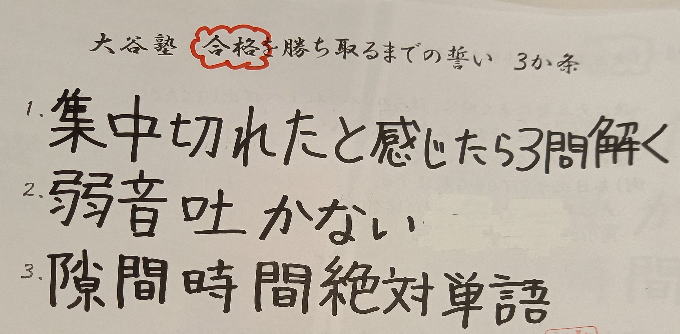 大谷塾 合格を勝ち取るまでの誓い 3か条
1. 集中切れたと感じたら3問解く
2. 弱音吐かない
3. 隙間時間絶対単語